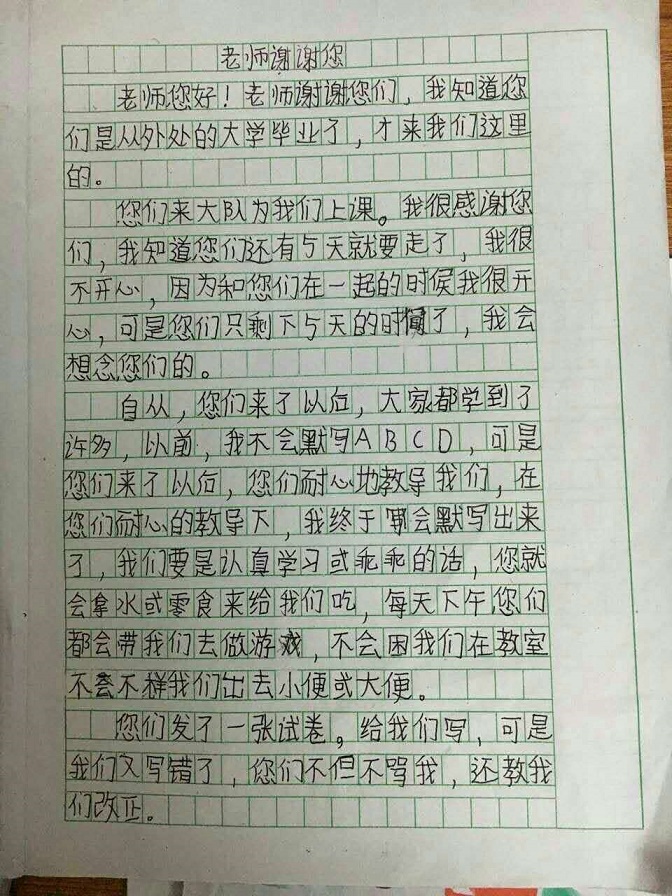 老师谢谢您
老师您好！老师谢谢您们，我知道您
们是从外处的大学毕业了，才来我们这里
的。
您们来大队为我们上课。我很感谢您
们，我知道您们还有5天就要走了，我很
不开心，因为和您们在一起的时侯我很开
心，可是您们只剩下5天的时间了，我会
想念您们的。
自从，您们来了以后，大家都学到了
许多，以前，我不会默写ABCD，可是
您们来了以后，您们耐心地教导我们，在
您们耐心的教导下，我终于会默写出来
了，我们要是认真学习或乖乖的话，您就
会拿水或零食来给我们吃，每天下午您们
都会带我们去做游戏，不会困我们在教室
不会不样我们出去小便或大便。
您们发了一张试卷。给我们写，可是
我们又写错了，您们不但不骂我，还教我
们改正。